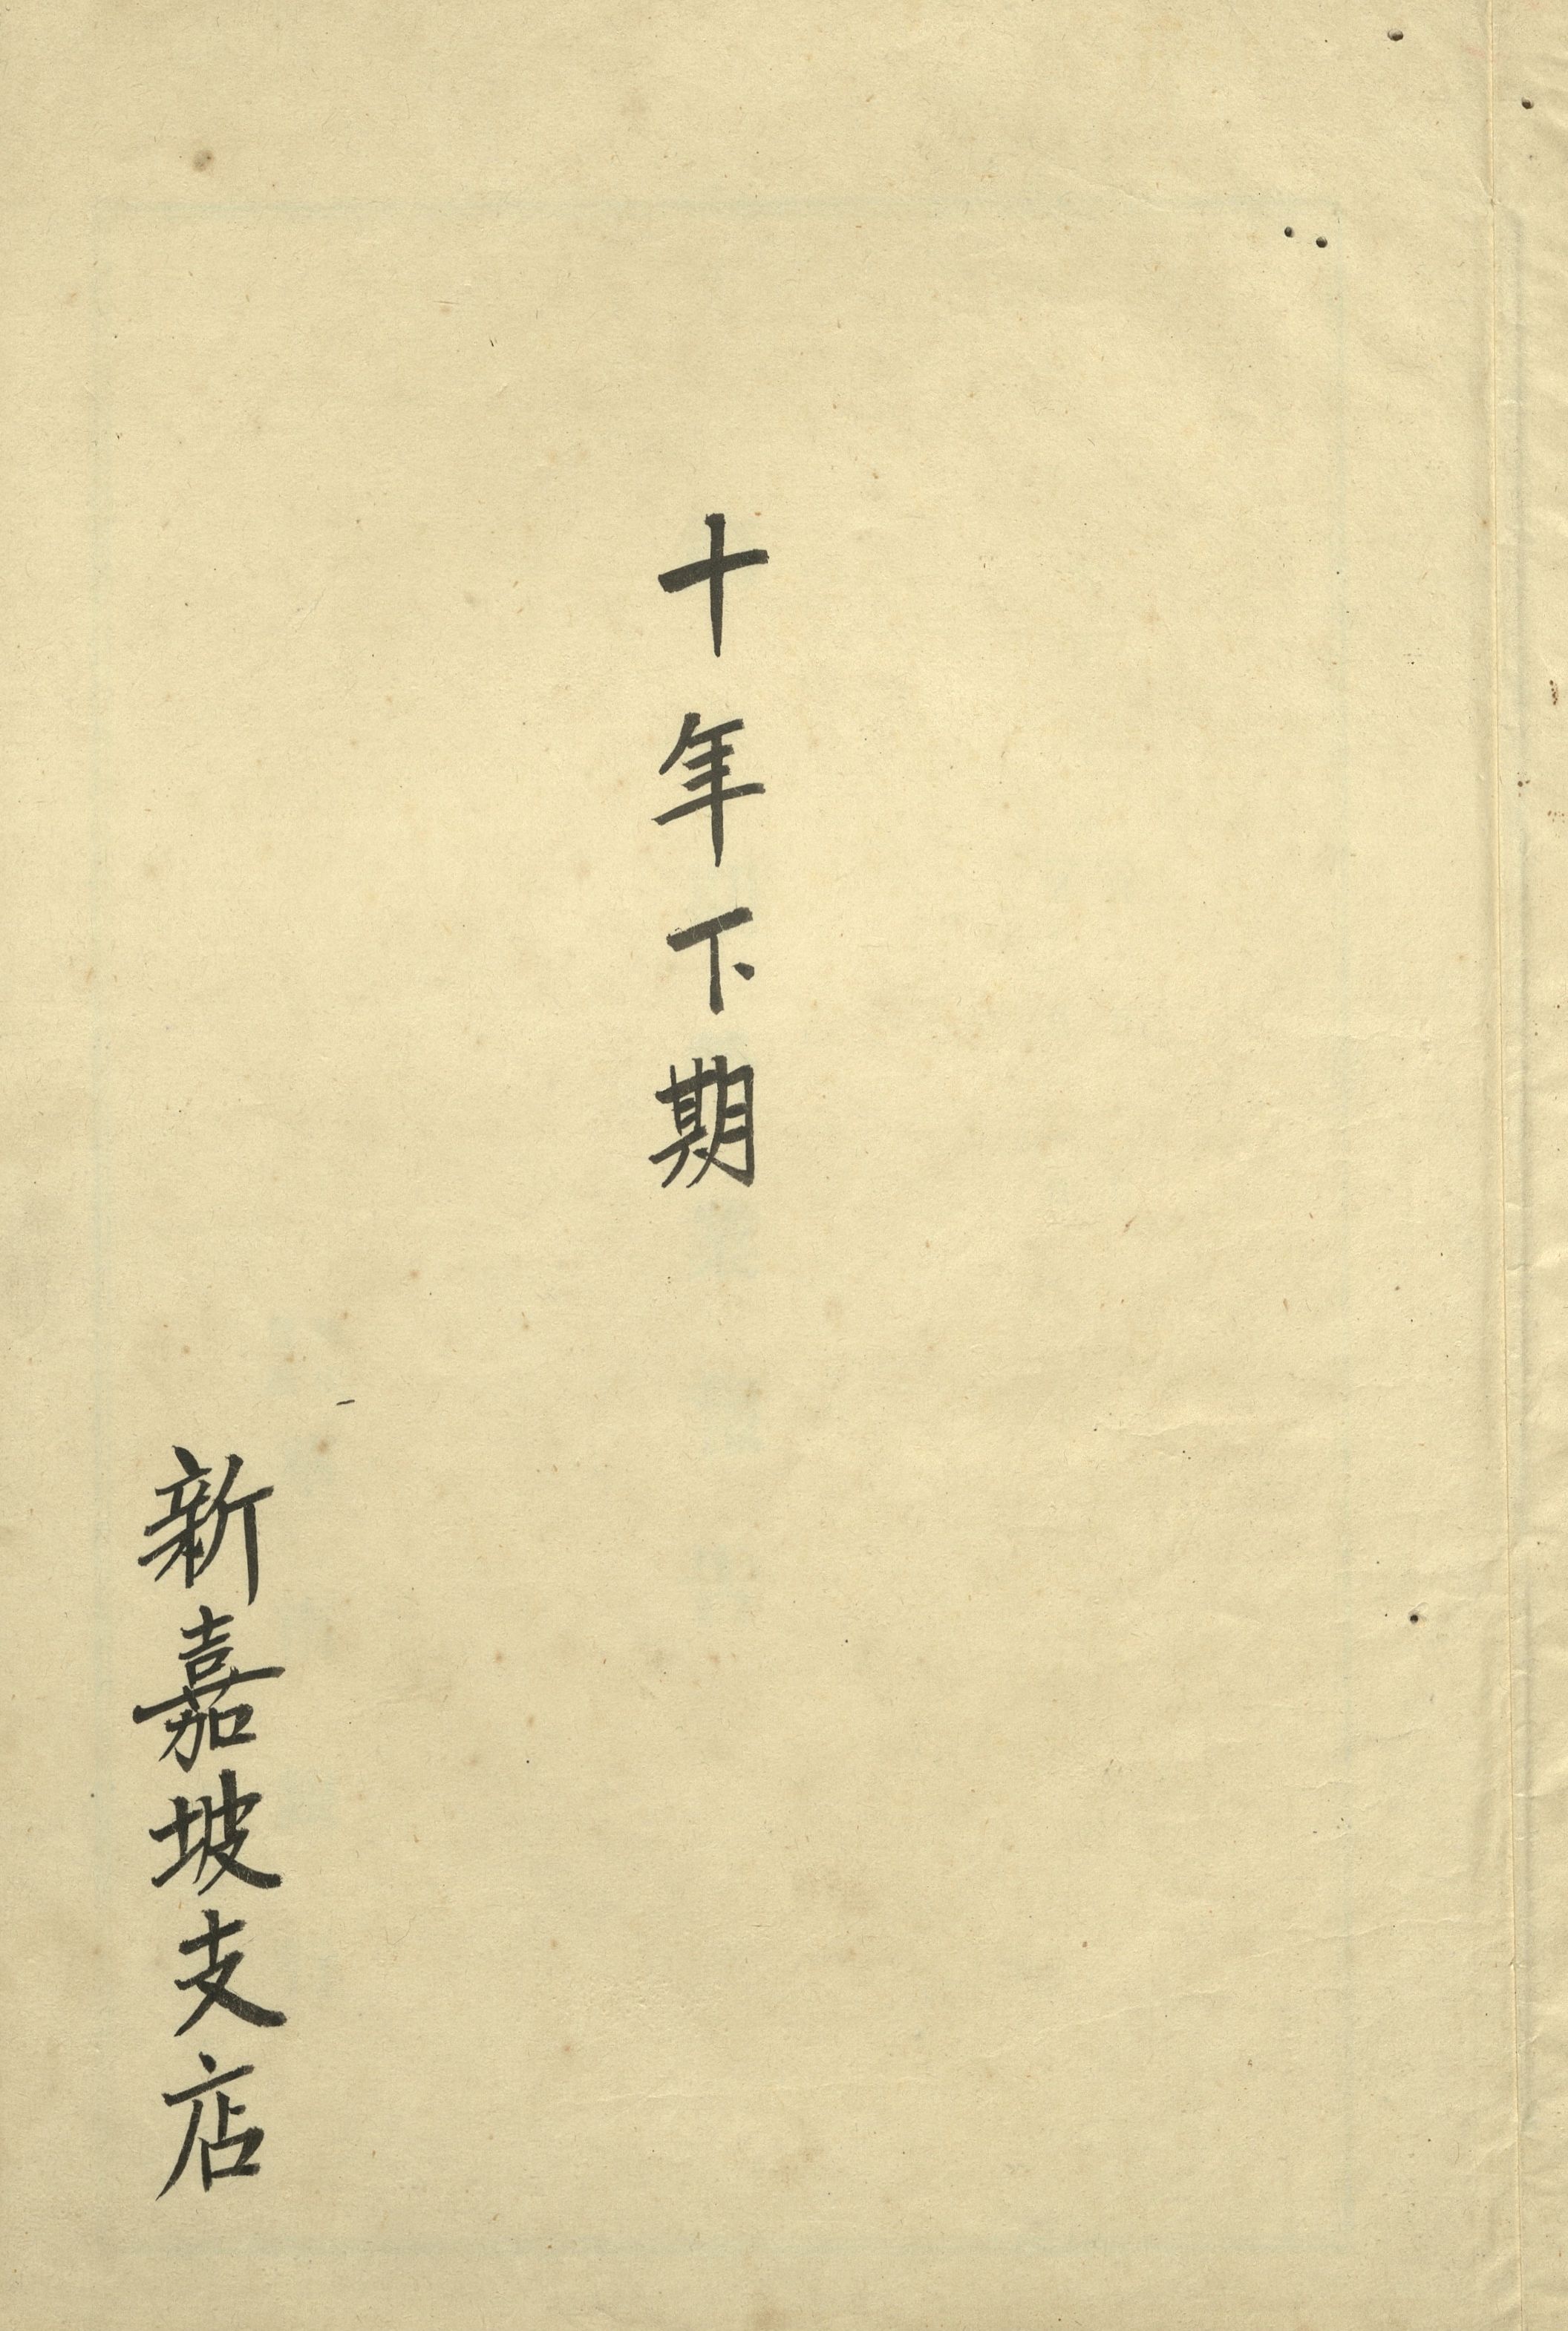 十年下期
新嘉坡支店